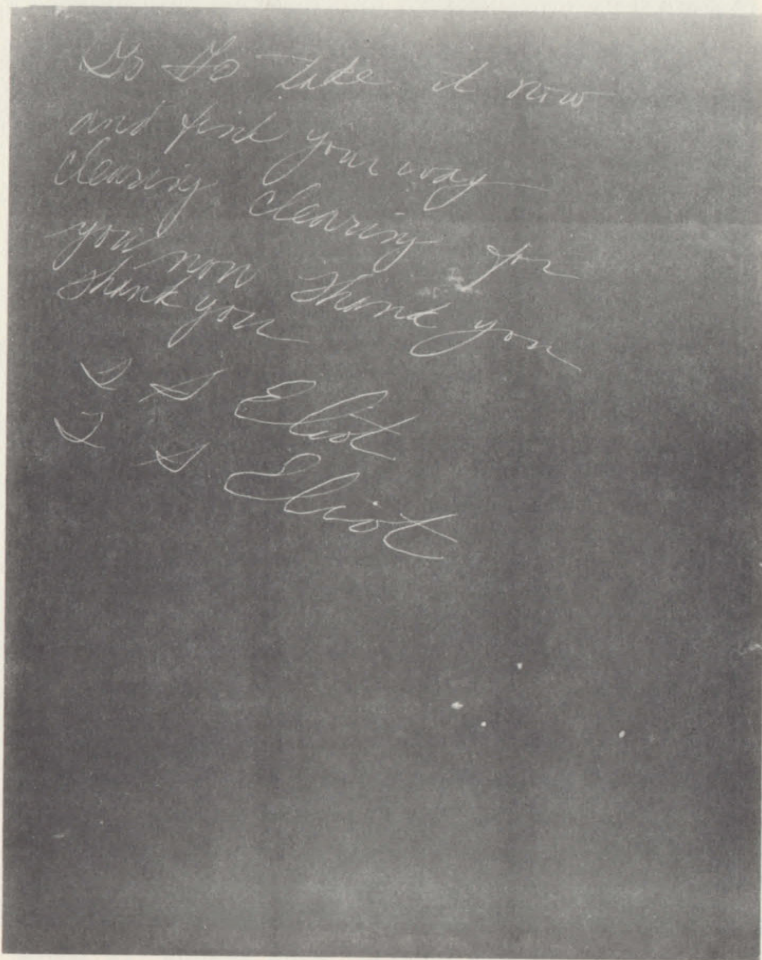 Go Go take it now
and find your way
clearing clearing for
you now thank you
thank you
T S Eliot
T S Eliot